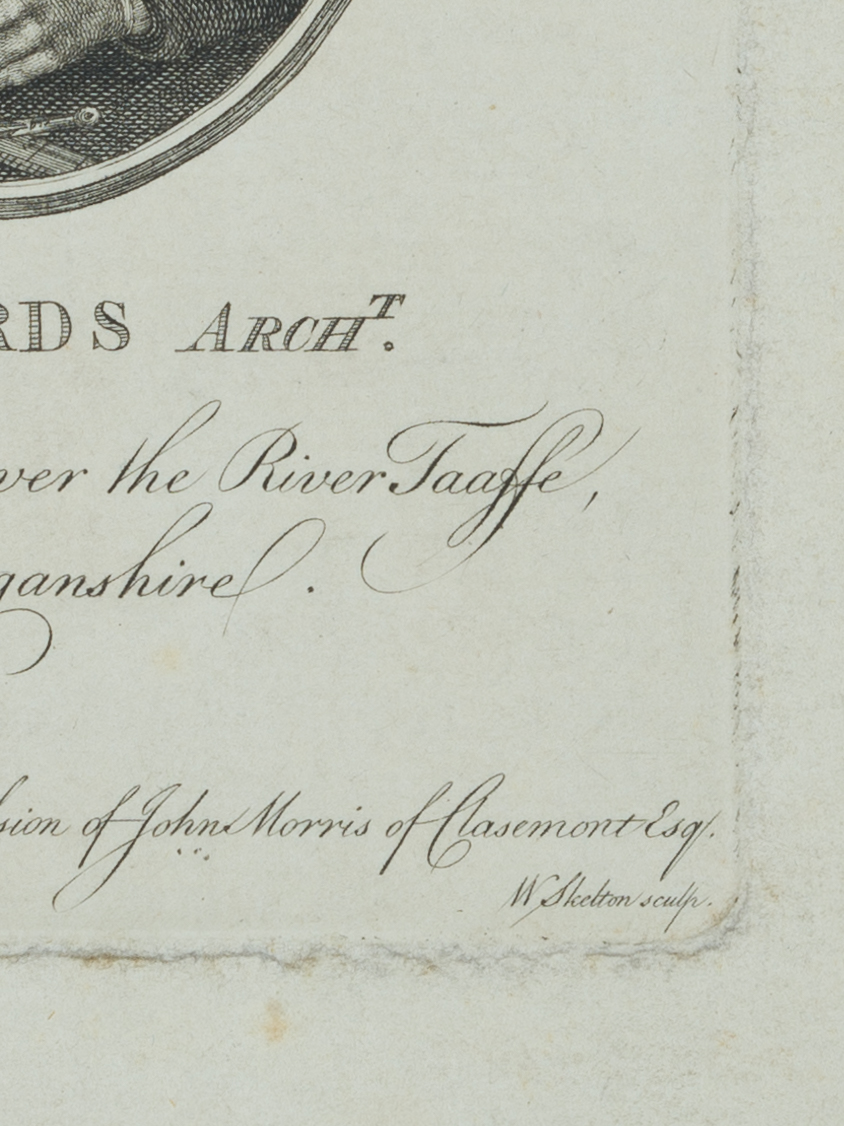 RDS ARCHT.
ver the River Taaffe,
ganshire.
sion of John Morris of Clasemont Esqr.
W Skelton sculp.